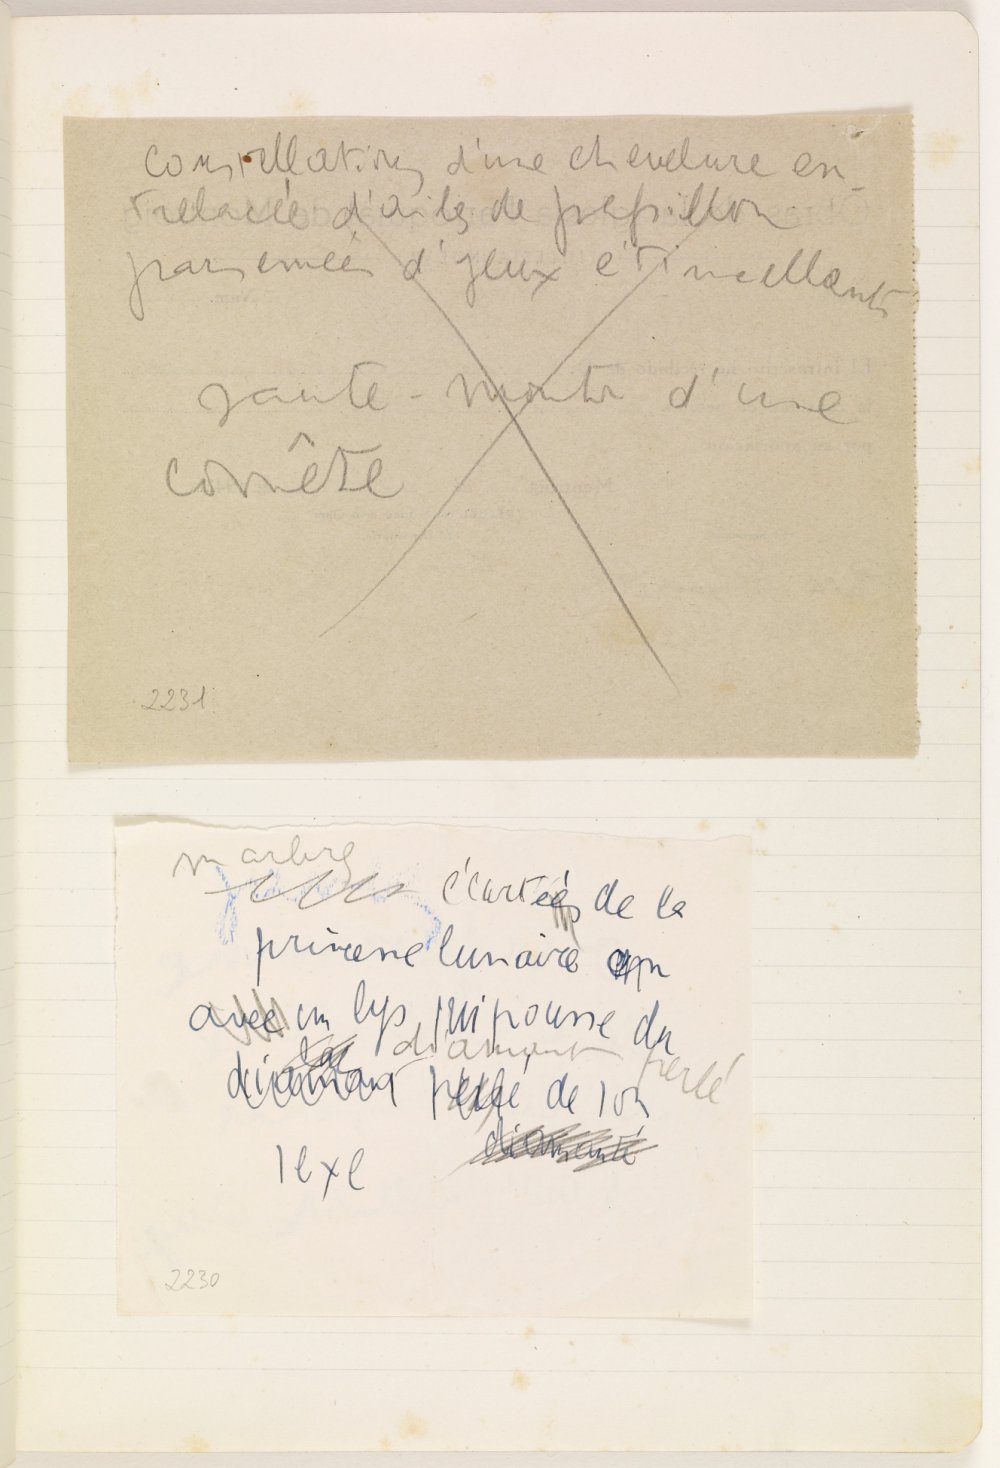 constellations d'une chevelure en-
trelacée d'ailes de papillon
parsemées d'yeux étincellants
saute-mouton d'une
comète
2231
marbre
écartées de la
princesse lunaire
avec un lys qui pousse du
diamant perlé
diamant percé de son
diamanté
sexe
2230